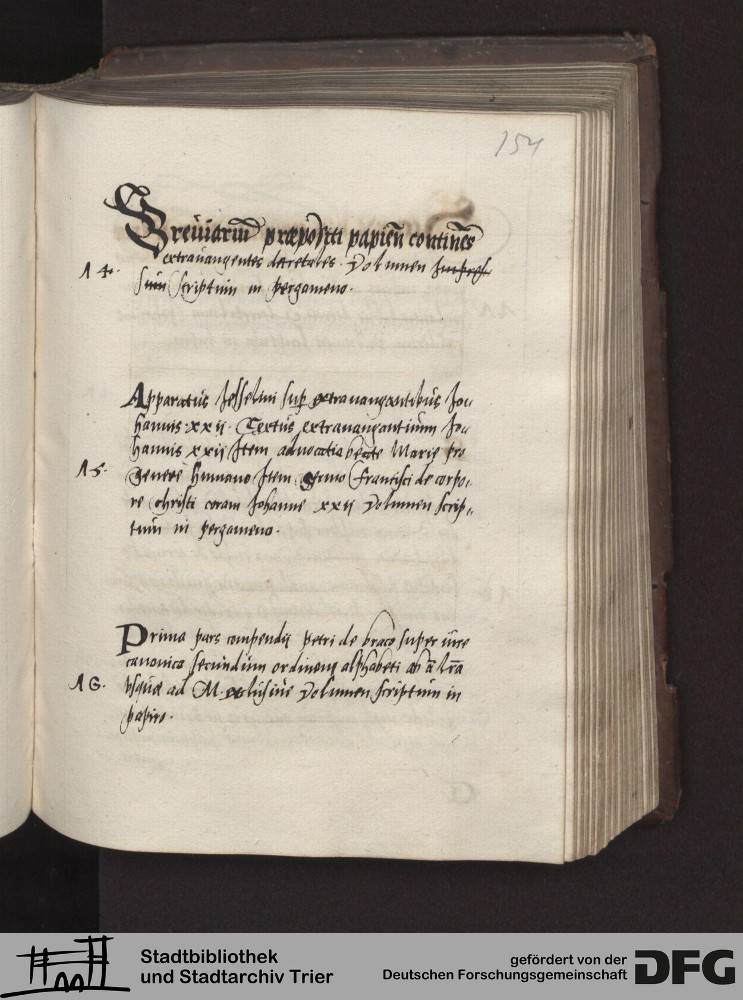 154
Breuiariū præpositi papieñ continēs
extrauangentes decretales. Volumen Impres
14. sum scriptum in pergameno.
Apparatus Jesselini suꝑ extrauangantibus Jo„
hannis xxij. Textus extrauangantium Jo„
hannis xxij Item aduocatia beate Marie pro
15. genere humano Item sermo Francisci de corpo„
re christi coram Johanne xxij Volumen scrip„
tum in pergameno.
Prima pars compendij petri de braco super iure
canonico secundum ordinem alphabeti ab a lrā
16. vsque ad M. exlusiue Volumen scriptum in
papiro.
Stadtbibliothek
und Stadtarchiv Trier
gefördert von der
Deutschen Forschungsgemeinschaft
DFG